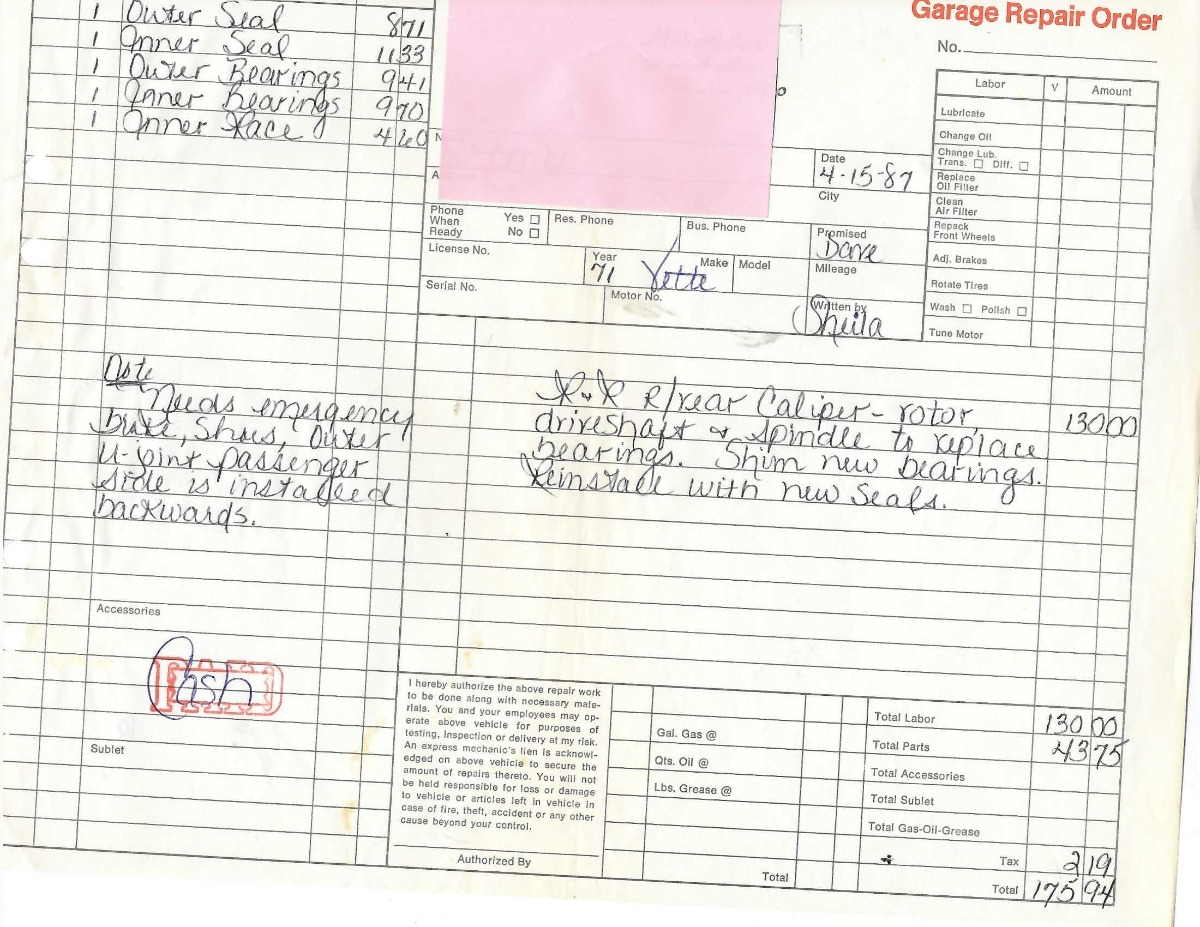 Garage Repair Order
No.
1 Outer Seal 8 71
1 Inner Seal 11 33
1 Outer Bearings 9 41
1 Inner Bearings 9 70
1 Inner Race 4 60
N
A
Date
4-15-87
City
Phone When Ready Yes ☐ No ☐
Res. Phone
Bus. Phone
Promised
Dave
License No.
Year
71
Make
Vette
Model
Mileage
Serial No.
Motor No.
Written by
Sheila
Labor √ Amount
Lubricate
Change Oil
Change Lub.
Trans. ☐ Diff. ☐
Replace
Oil Filter
Clean
Air Filter
Repack
Front Wheels
Adj. Brakes
Rotate Tires
Wash ☐ Polish ☐
Tune Motor
Note
Needs emergency
brake, Shoes, Outer
U-joint passenger
side is installed
backwards.
R & R R/rear Caliper - rotor, 130 00
driveshaft & spindle to replace
bearings. Shim new bearings.
Reinstall with new Seals.
Accessories
Cash
Sublet
I hereby authorize the above repair work
to be done along with necessary mate-
rials. You and your employees may op-
erate above vehicle for purposes of
testing, inspection or delivery at my risk.
An express mechanic's lien is acknowl-
edged on above vehicle to secure the
amount of repairs thereto. You will not
be held responsible for loss or damage
to vehicle or articles left in vehicle in
case of fire, theft, accident or any other
cause beyond your control.
Authorized By
Gal. Gas @
Qts. Oil @
Lbs. Grease @
Total
Total Labor 130 00
Total Parts 43 75
Total Accessories
Total Sublet
Total Gas-Oil-Grease
Tax 2 19
Total 175 94